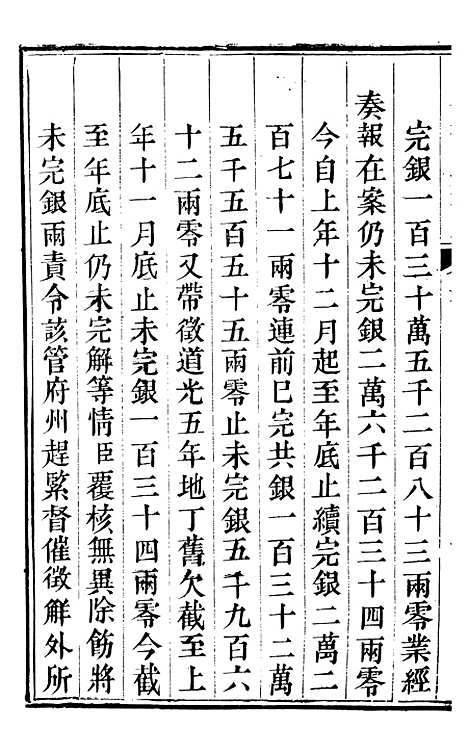 完銀一百三十萬五千二百八十三兩零業經
奏報在案仍未完銀二萬六千二百三十四兩零
今自上年十二月起至年底止續完銀二萬二
百七十一兩零連前已完共銀一百三十二萬
五千五百五十五兩零止未完銀五千九百六
十二兩零又帶徵道光五年地丁舊欠截至上
年十一月底止未完銀一百三十四兩零今截
至年底止仍未完解等情臣覆核無異除飭將
未完銀兩責令該管府州趕緊督催徵解外所